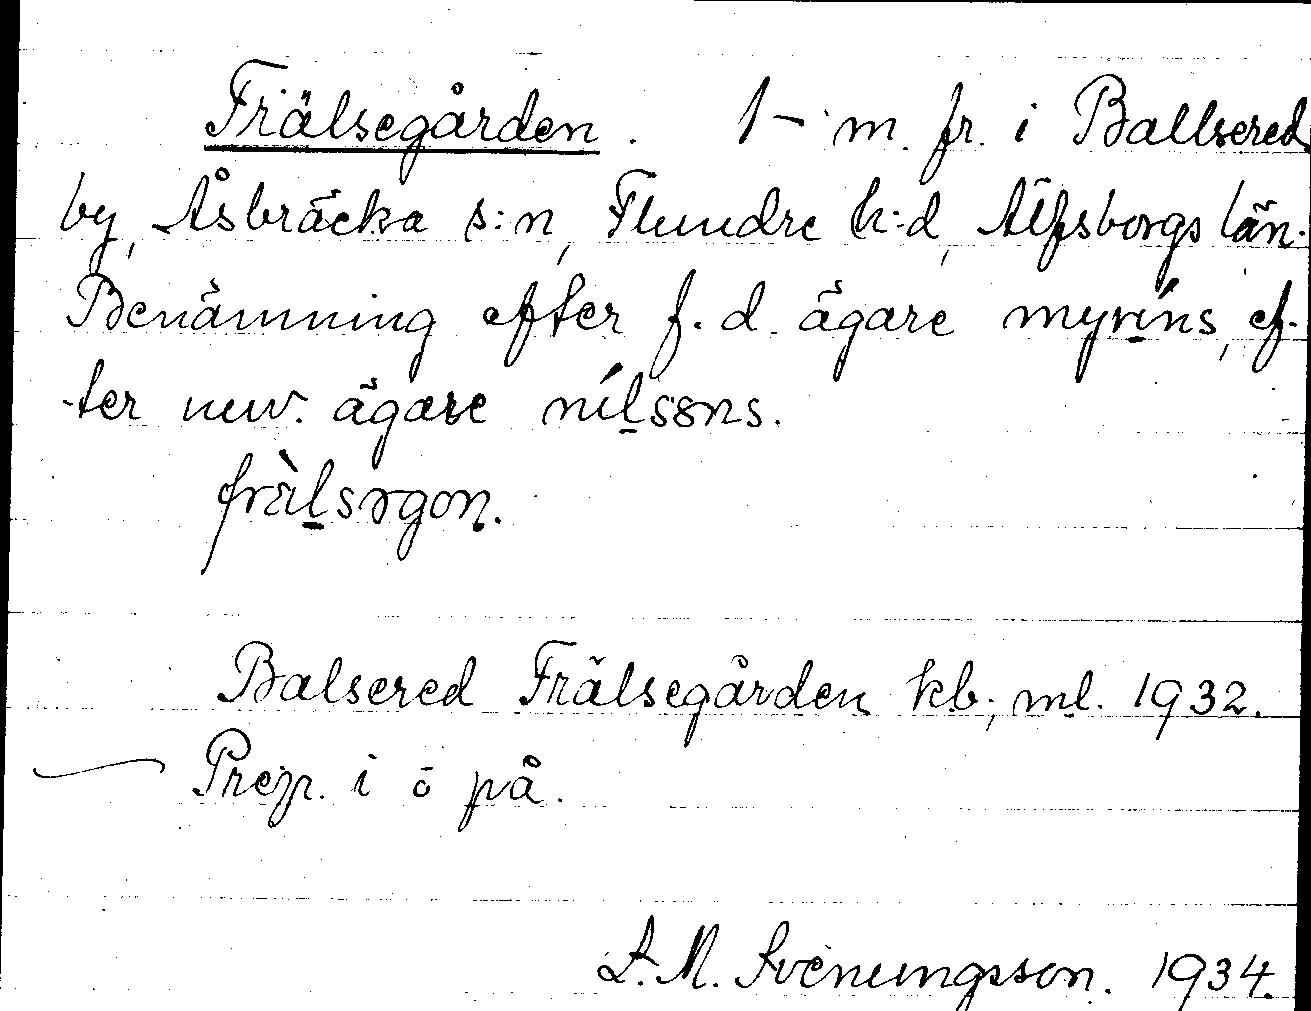 Frälsegården. 1- m. fr. i Ballsered
by, Åsbräcka s:n, Flundre h:d, Älfsborgs län.
Benämning efter f.d. ägare myrins, ef-
-ter nuv. ägare nílssns.
frälsrgon.
Balsered Frälsegården kb; ml. 1932.
Prep. i o på.
L.M. Svenungsson. 1934.